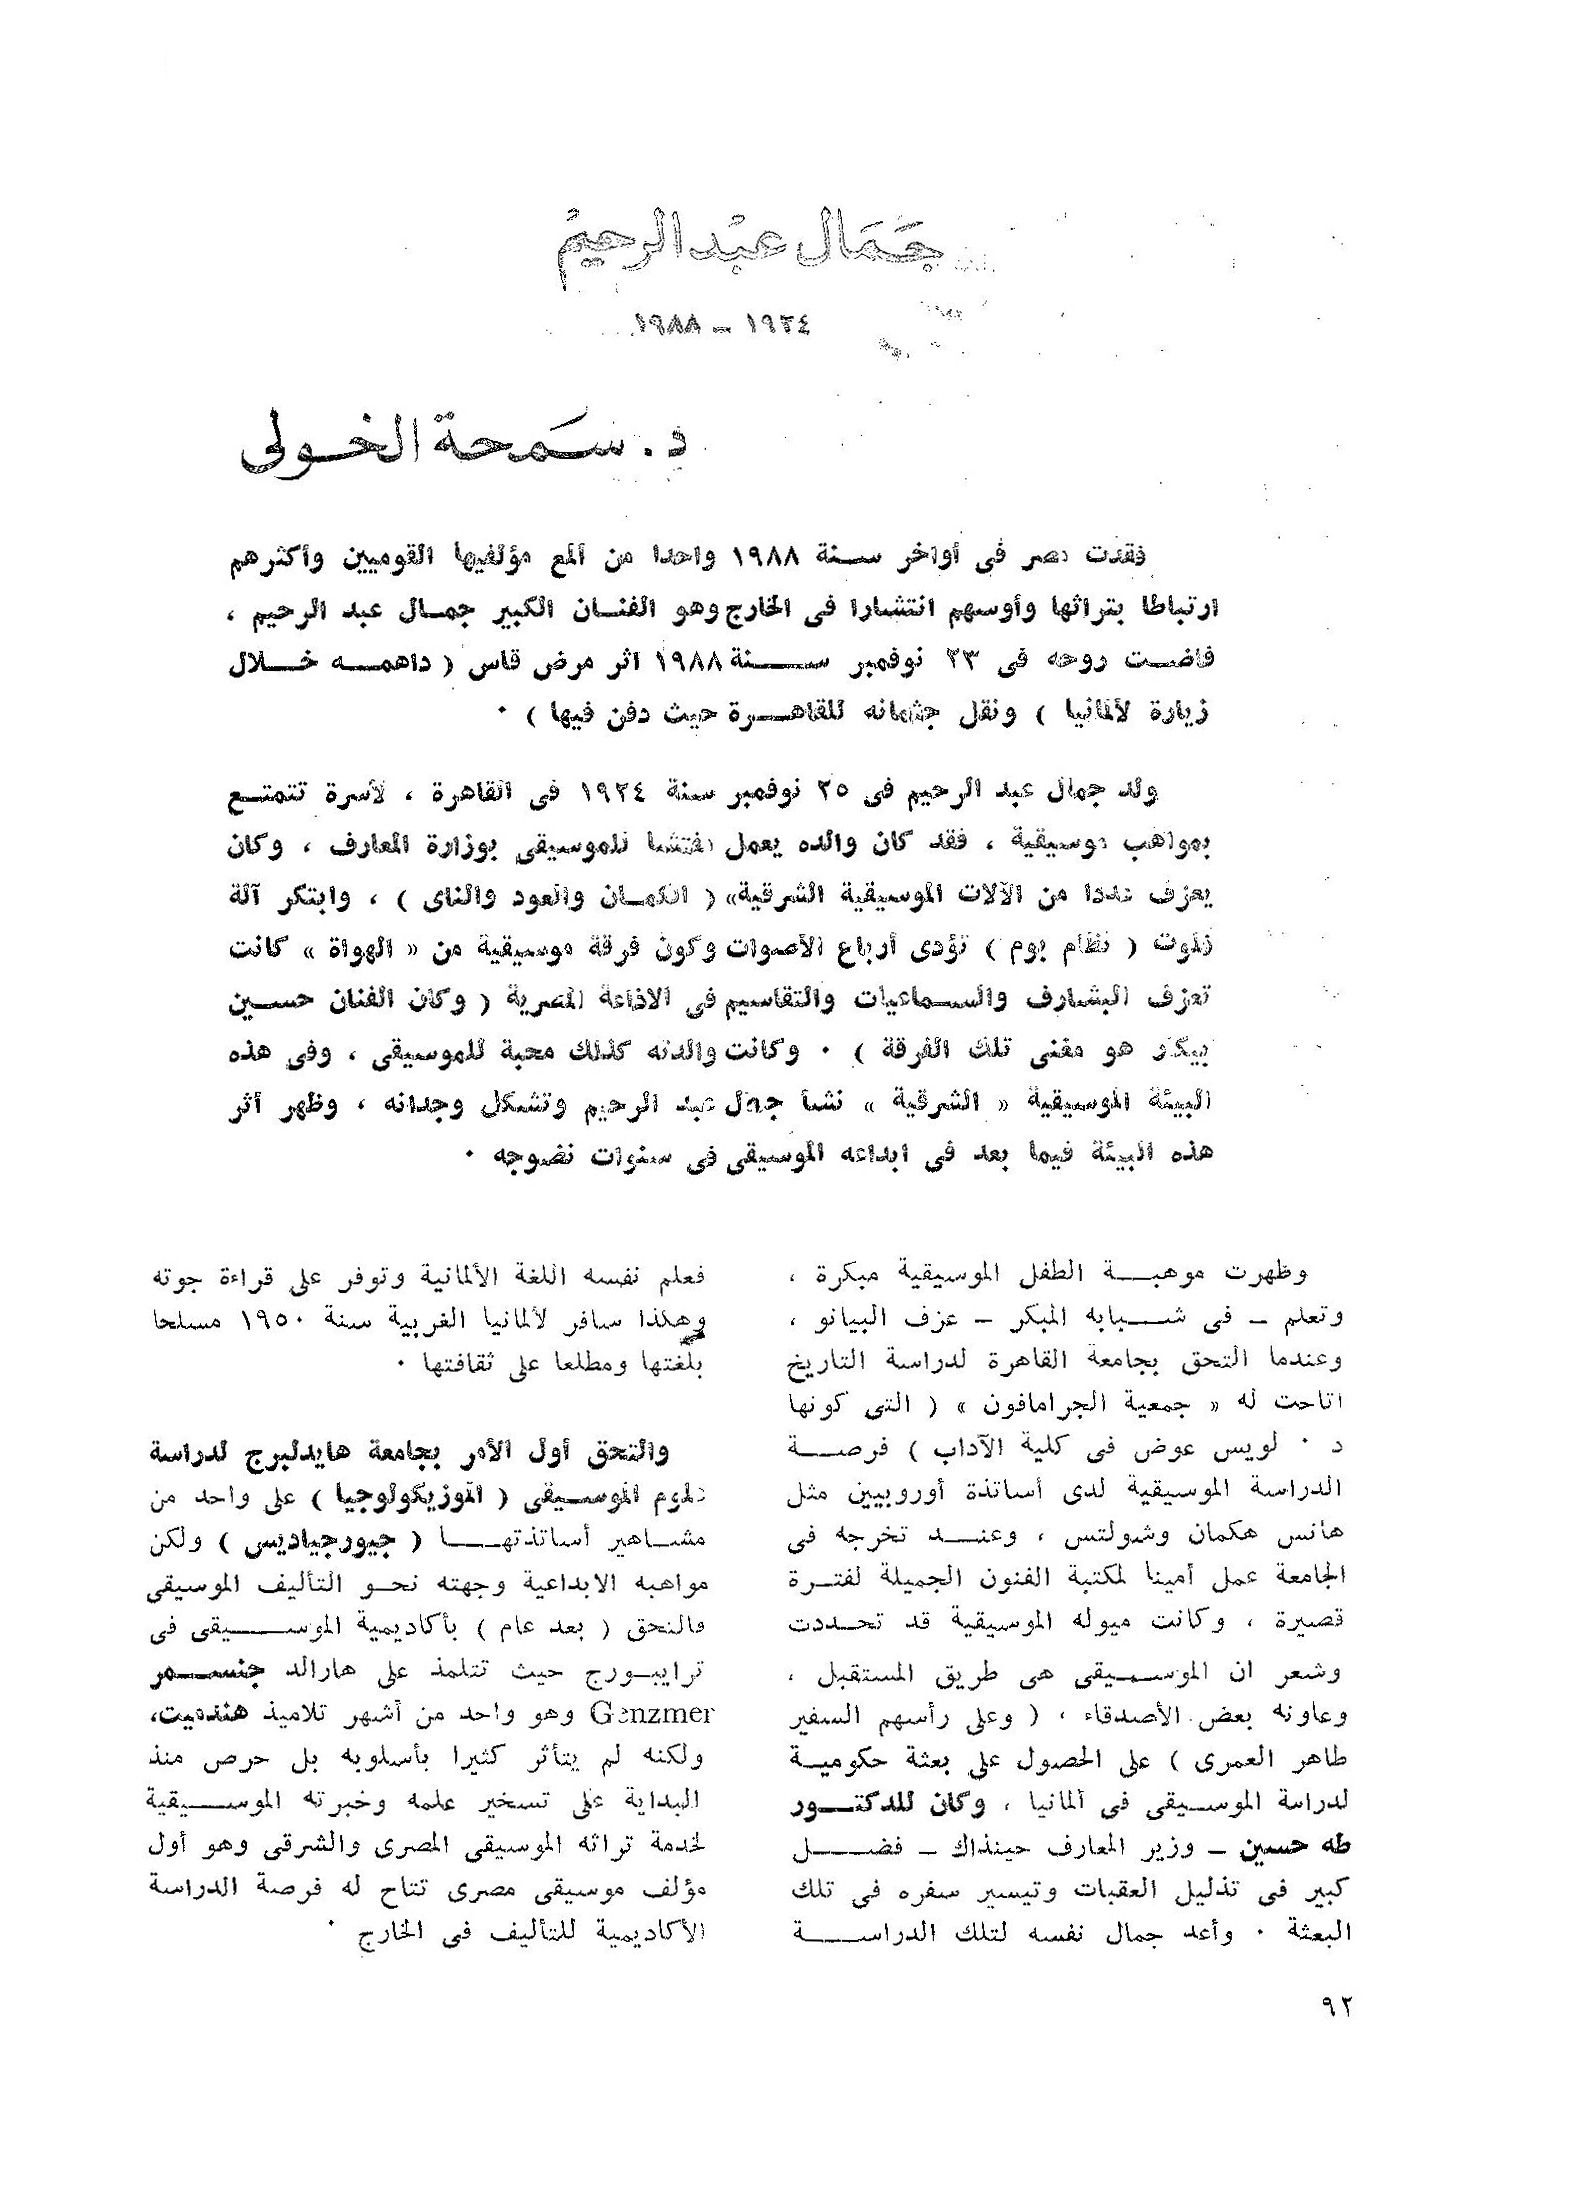 جَمَال عبْد الرحيمْ
١٩٢٤ – ١٩٨٨
د. سَمحة الخولى
فقدت مصر فى أواخر سنة ١٩٨٨ واحدا من ألمع مؤلفيها القوميين وأكثرهم
ارتباطا بتراثها وأوسهم انتشارا فى الخارج وهو الفنان الكبير جمال عبد الرحيم ،
فاضت روحه فى ٢٣ نوفمبر سنة ١٩٨٨ اثر مرض قاس ( داهمه خلال
زيارة لألمانيا ) ونقل جثمانه للقاهرة حيث دفن فيها ) ٠
ولد جمال عبد الرحيم فى ٢٥ نوفمبر سنة ١٩٢٤ فى القاهرة ، لأسرة تتمتع
بمواهب موسيقية ، فقد كان والده يعمل مفتشا للموسيقى بوزارة المعارف ، وكان
يعزف عددا من الآلات الموسيقية الشرقية» ( الكمان والعود والناى ) ، وابتكر آلة
فلوت ( نظام بوم ) تؤدى أرباع الأصوات وكون فرقة موسيقية من « الهواة » كانت
تعزف البشارف والسماعيات والتقاسيم فى الاذاعة المصرية ( وكان الفنان حسين
بيكار هو مغنى تلك الفرقة ) ٠ وكانت والدته كذلك محبة للموسيقى ، وفى هذه
البيئة الموسيقية « الشرقية » نشأ جمال عبد الرحيم وتشكل وجدانه ، وظهر أثر
هذه البيئة فيما بعد فى ابداعه الموسيقى فى سنوات نضوجه ٠
وظهرت موهبة الطفل الموسيقية مبكرة ،
وتعلم – فى شبابه المبكر – عزف البيانو ،
وعندما التحق بجامعة القاهرة لدراسة التاريخ
اتاحت له « جمعية الجرامافون » ( التى كونها
د ٠ لويس عوض فى كلية الآداب ) فرصة
الدراسة الموسيقية لدى أساتذة أوروبيين مثل
هانس هكمان وشولتس ، وعند تخرجه فى
الجامعة عمل أمينا لمكتبة الفنون الجميلة لفترة
قصيرة ، وكانت ميوله الموسيقية قد تحددت
وشعر ان الموسيقى هى طريق المستقبل ،
وعاونه بعض الأصدقاء ، ( وعلى رأسهم السفير
طاهر العمرى ) على الحصول على بعثة حكومية
لدراسة الموسيقى فى ألمانيا ، وكان للدكتور
طه حسين – وزير المعارف حينذاك – فضل
كبير فى تذليل العقبات وتيسير سفره فى تلك
البعثة ٠ وأعد جمال نفسه لتلك الدراسة
فعلم نفسه اللغة الألمانية وتوفر على قراءة جوته
وهكذا سافر لألمانيا الغربية سنة ١٩٥٠ مسلحا
بلغتها ومطلعا على ثقافتها ٠
والتحق أول الأمر بجامعة هايدلبرج لدراسة
علوم الموسيقى ( الموزيكولوجيا ) على واحد من
مشاهير أساتذتها ( جيورجياديس ) ولكن
مواهبه الابداعية وجهته نحو التأليف الموسيقى
فالتحق ( بعد عام ) بأكاديمية الموسيقى فى
ترايبورج حيث تتلمذ على هارالد جنسمر
Genzmer وهو واحد من أشهر تلاميذ هندميت،
ولكنه لم يتأثر كثيرا بأسلوبه بل حرص منذ
البداية على تسخير علمه وخبرته الموسيقية
لخدمة تراثه الموسيقى المصرى والشرقى وهو أول
مؤلف موسيقى مصرى تتاح له فرصة الدراسة
الأكاديمية للتأليف فى الخارج ٠
٩٢